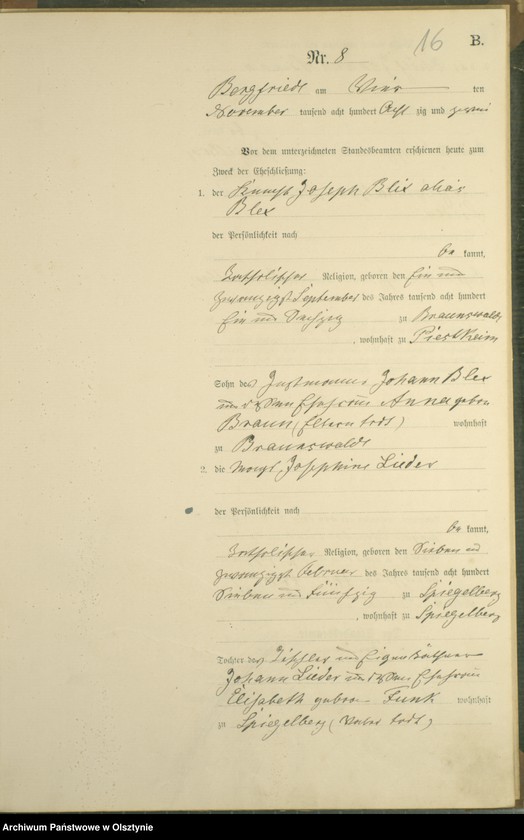 16 B.
Nr. 8
Bergfriede am Vier ten
November tausend acht hundert Acht zig und zwei
Vor dem unterzeichneten Standesbeamten erschienen heute zum
Zweck der Eheschließung:
1. der Knecht Joseph Blex alias
Blex
der Persönlichkeit nach
be kannt,
katholischer Religion, geboren den Ein und
zwanzigst September des Jahres tausend acht hundert
Ein und Sechzig zu Braunswalde
, wohnhaft zu Piestkeim
Sohn des Instmanns Johann Blex
und dessen Ehefrau Anna gebor.
Braun (Eltern todt) wohnhaft
zu Braunswalde
2. die Magd Josephine Lieder
der Persönlichkeit nach
be kannt,
katholischer Religion, geboren den Sieben und
zwanzigst Februar des Jahres tausend acht hundert
Sieben und Fünfzig zu Spiegelberg
, wohnhaft zu Spiegelberg
Tochter des Tischler und Eigenkäthner
Johann Lieder und dessen Ehefrau
Elisabeth gebor. Funk wohnhaft
zu Spiegelberg (Vater todt)
Archiwum Państwowe w Olsztynie